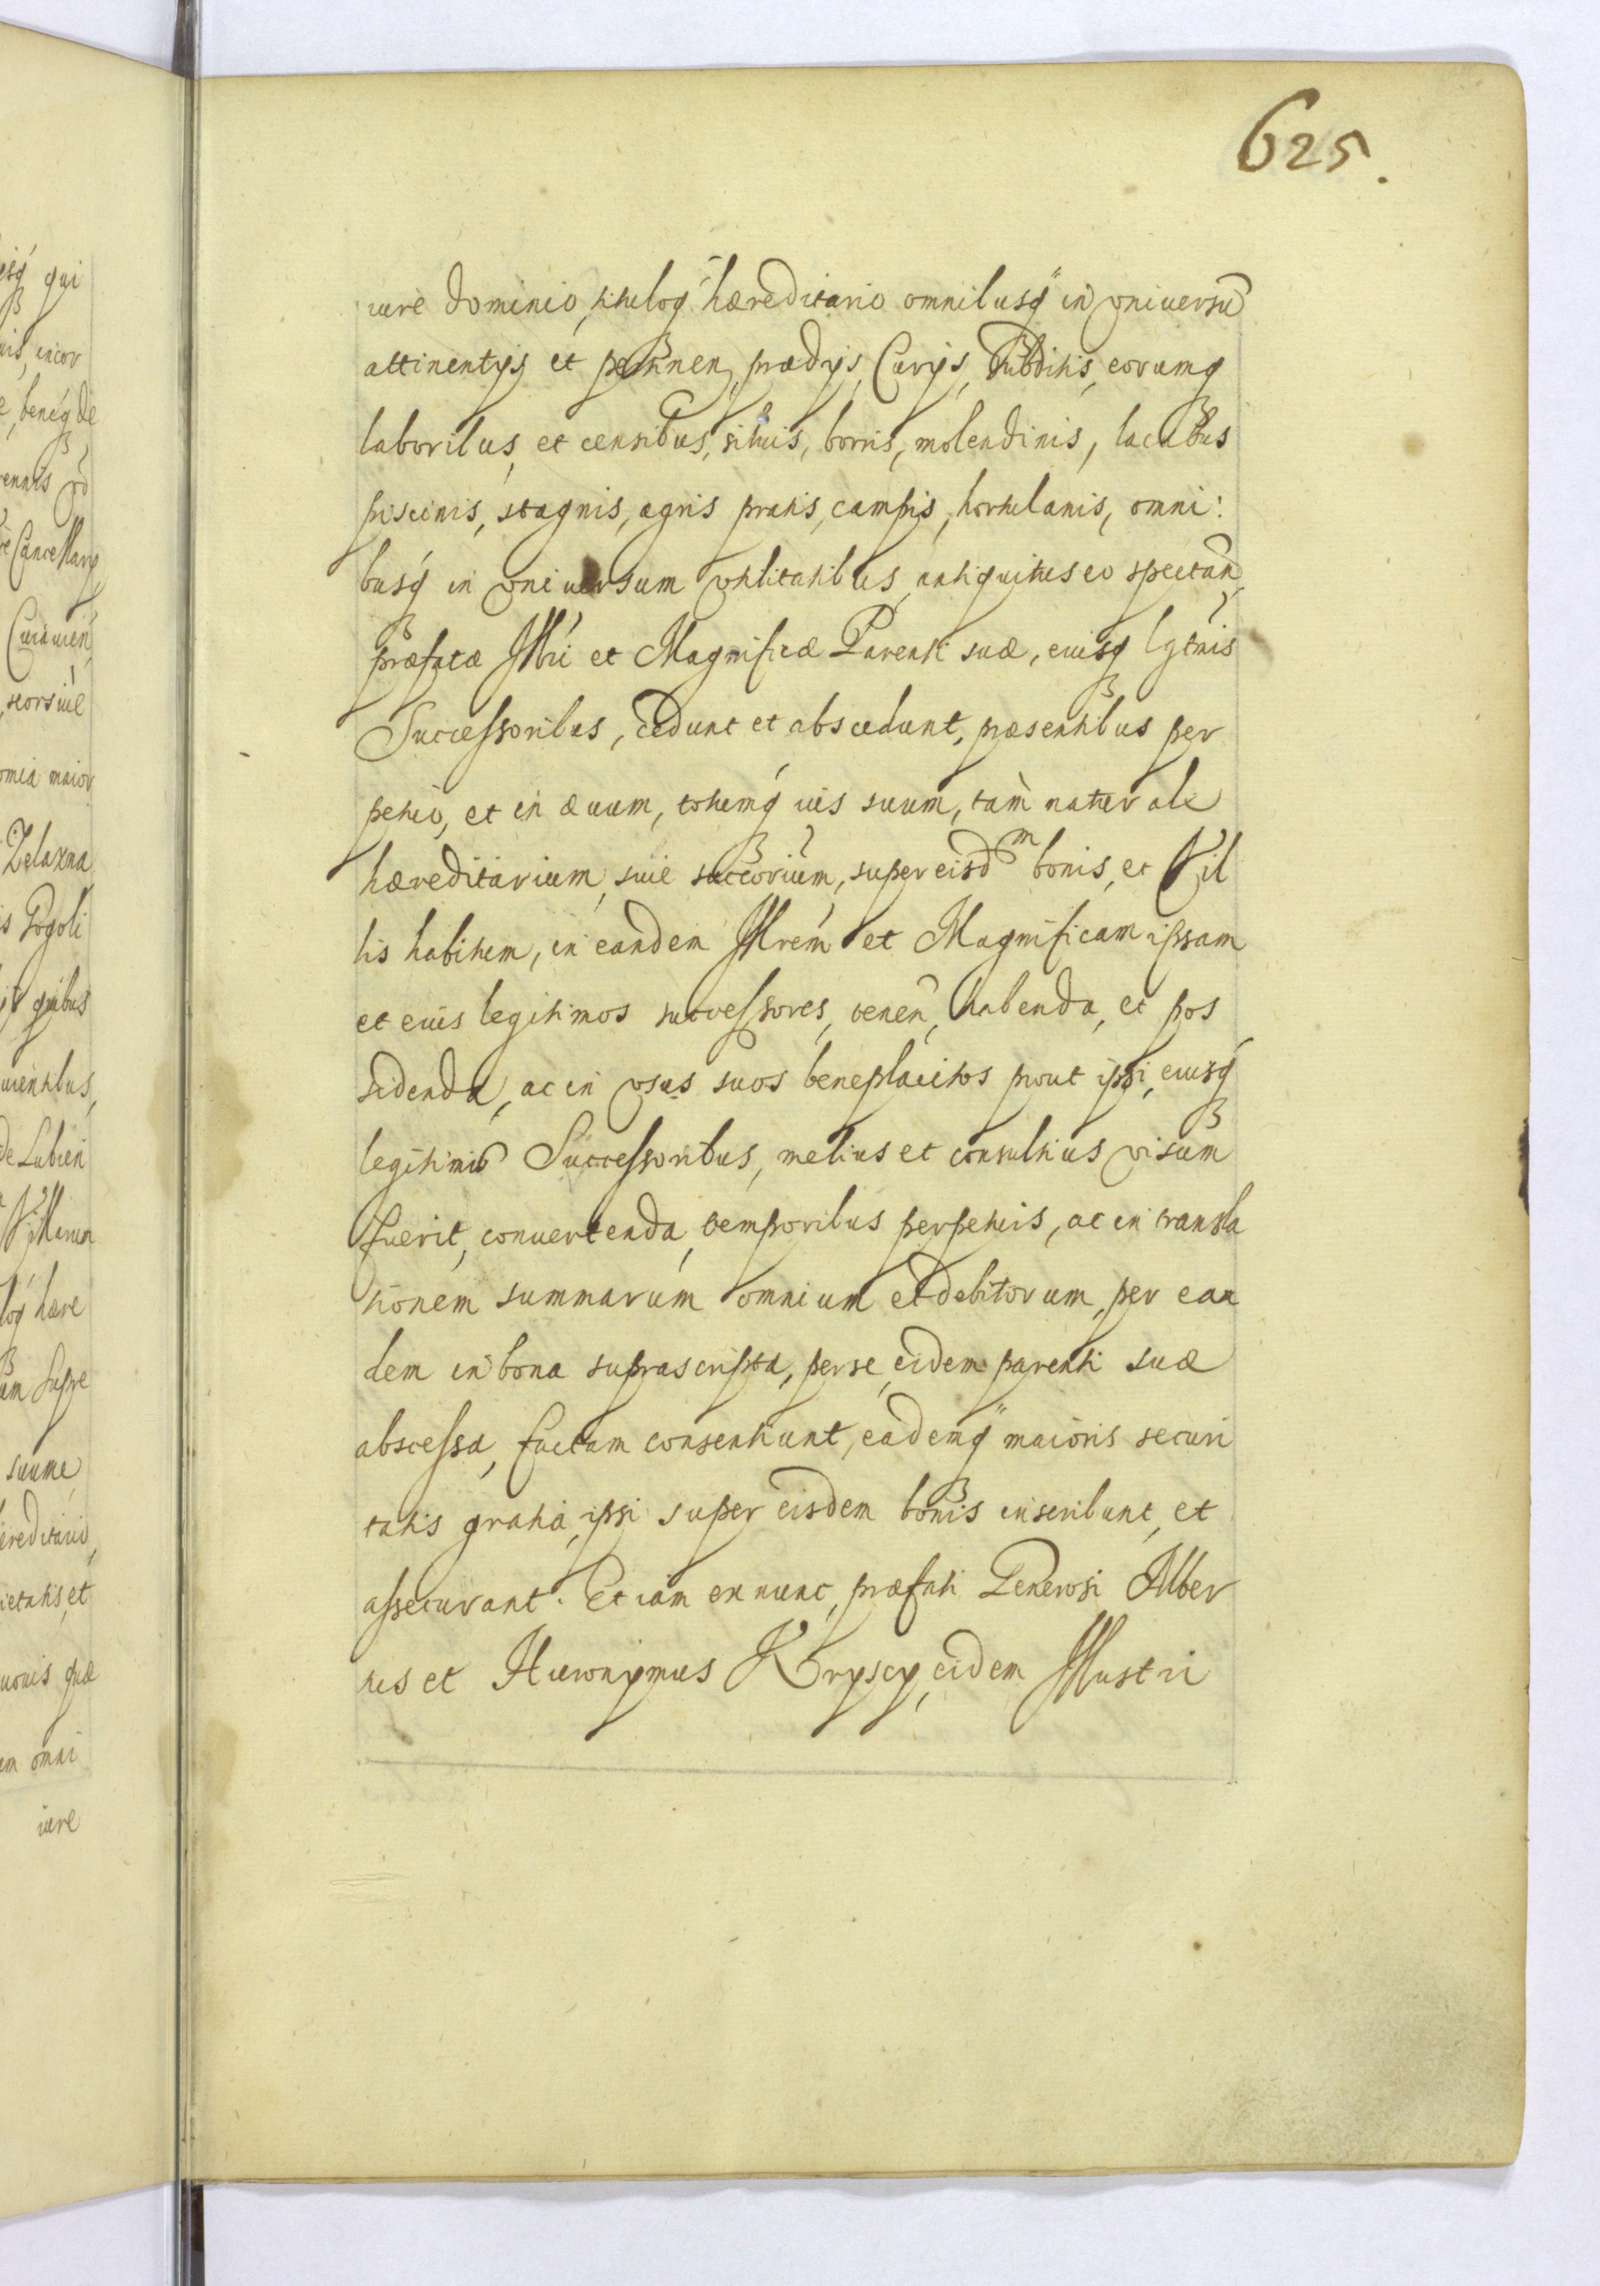 625.
iure dominio, tituloq hæreditario omnibusq in vniuersu
attinentijs et pertinen, prædijs, Curijs, Subditis, eorumq
laboribus, et censibus, siluis, borris, molendinis, lacubus
piscinis, stagnis, agris pratis, campis, hortulanis, omni:
busq in vniuersum vtilitatibus, antiquitus eo spectan
præfatæ Illri et Magnificæ Parenti suæ, eiusq lgtmis
Successoribus, cedunt et abscedunt, præsentibus per
petuo, et in æuum, totumq ius suum, tam naturale
hæreditarium, siue succorium, super eisd m bonis, et Vil
lis habitum, in eandem Illrem et Magnificam ipsam
et eius legitimos successores, tenen, habenda, et pos
sidenda, ac in vsus suos beneplacitos prout ipsi, eiusq
legitimis Successoribus, melius et consultius visum
fuerit, conuertenda, temporibus perpetuis, ac in transla
tionem summarum omnium et debitorum, per ean
dem in bona suprascripta, per se, eidem parenti suæ
abscessa, factam consentiunt, eademq maioris securi
tatis gratia, ipsi super eisdem bonis inscribunt, et
assecurant. Et iam ex nunc, præfati Generosi Alber
tus et Hieronymus Kryscy, eidem Illustri
qui
incor
beneq de
Cancellary
seorsiue
maior
Zelazna
Pogoli
quibus
de Lubien
hære
supre
suume
ietatis, et
quæ
omni
iure